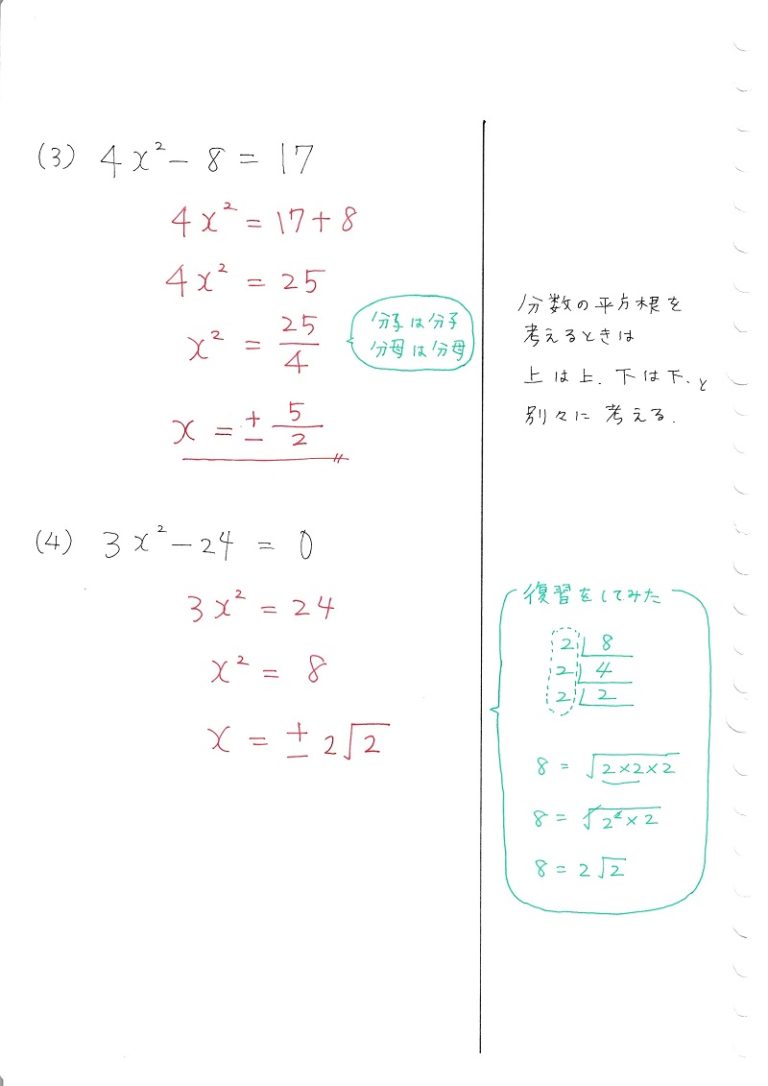 (3) 4x² - 8 = 17
4x² = 17 + 8
4x² = 25
x² = 25/4
分子は分子
分母は分母
x = ± 5/2
分数の平方根を
考えるときは
上は上．下は下．と
別々に考える．
(4) 3x² - 24 = 0
3x² = 24
x² = 8
x = ± 2√2
復習をしてみた
2 ⌊ 8
2 ⌊ 4
2 ⌊ 2
8 = √(2×2×2)
8 = √(2²×2)
8 = 2√2